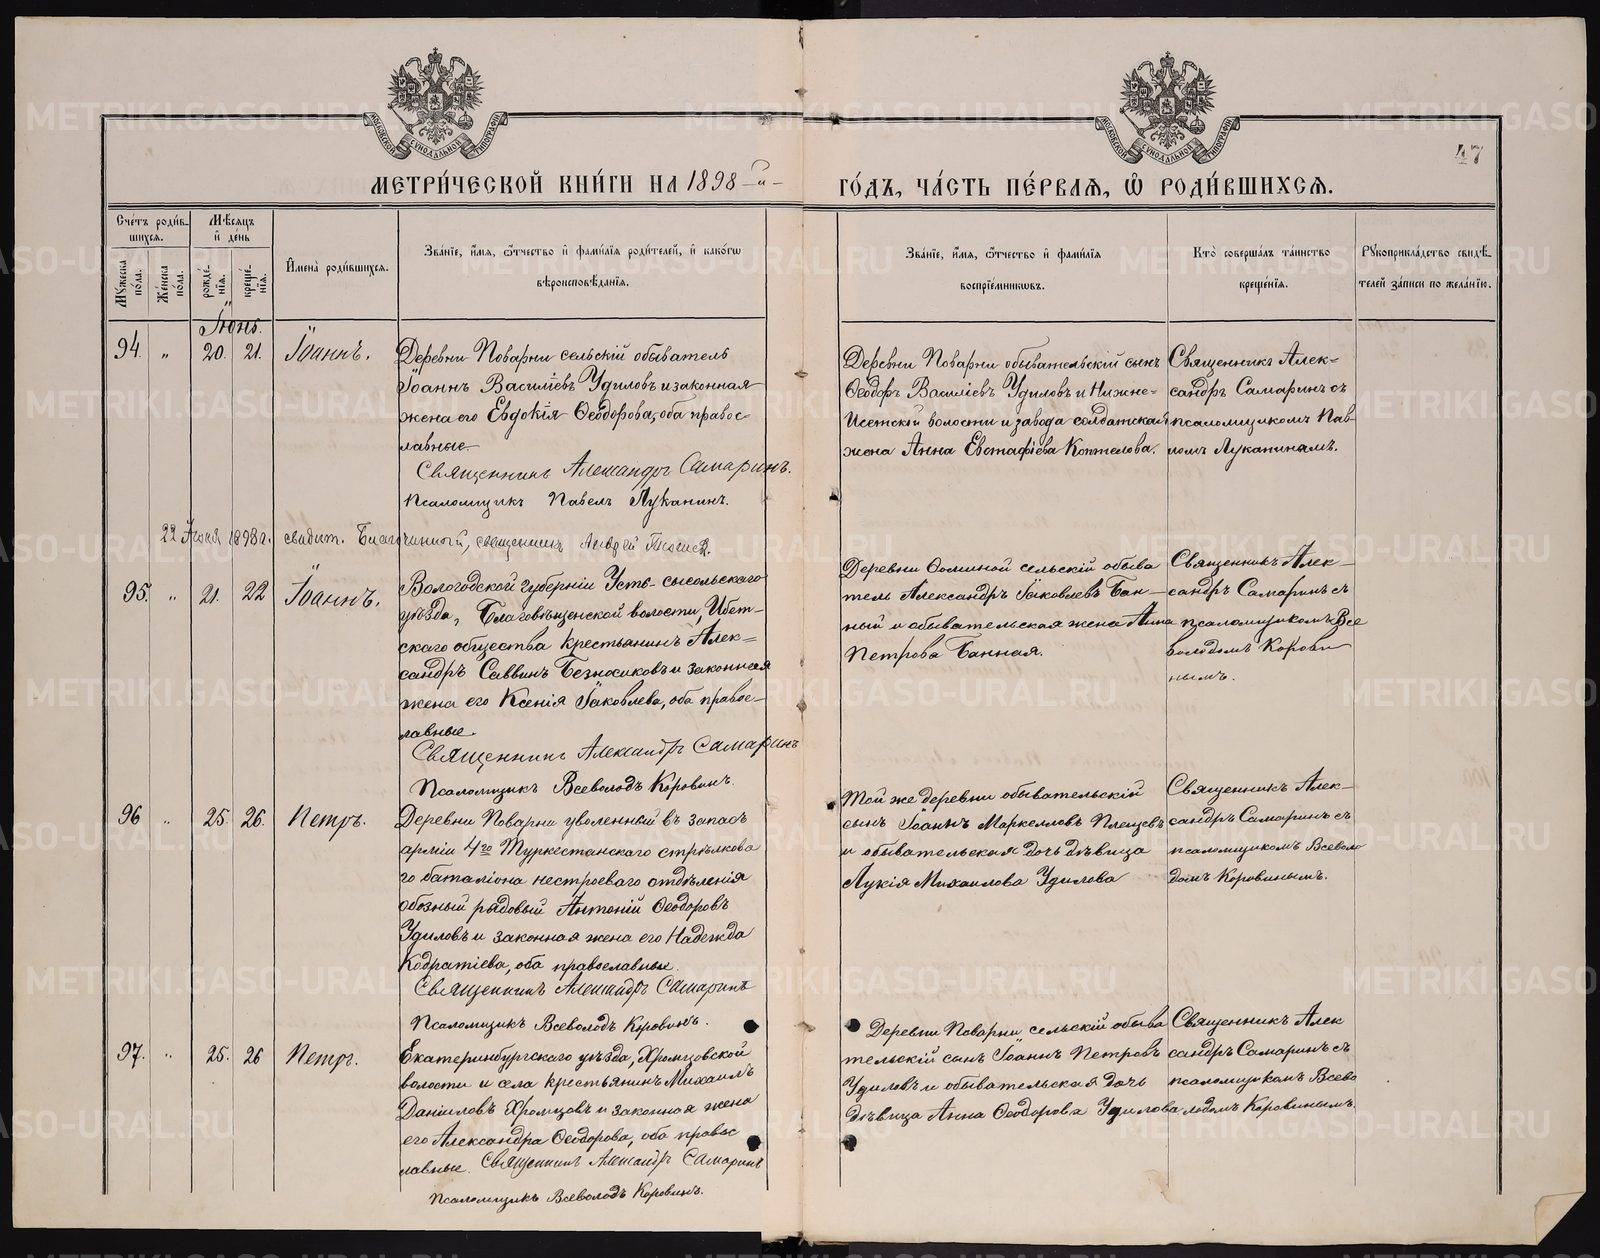 МОСКОВСКОЙ СѴНОДАЛЬНОЙ ТИПОГРАФІИ
МОСКОВСКОЙ СѴНОДАЛЬНОЙ ТИПОГРАФІИ
47
МЕТРИ́ЧЕСКОЙ КНИ́ГИ НА 1898 ГО́ДЪ, ЧА́СТЬ ПЕ́РВАЯ, Ѽ РОДИ́ВШИХСЯ.
Сче́тъ роди́в-
шихся.
Мꙋ́жеска по́ла.
Же́нска по́ла.
Мѣ́сяцъ
и҆ день
рожде́-нїѧ.
креще́-нїѧ.
И҆мена̀ роди́вшихся.
Зва́нїе, и҆́мя, ѻ҆́тчество и҆ фами́лїя роди́телей, и҆ како́гѡ
вѣроисповѣ́данїя.
Зва́нїе, и҆́мя, ѻ҆́тчество и҆ фами́лїя
воспрїе́мникѡвъ.
Кто̀ соверша́лъ та́инство
креще́нїя.
Рꙋкоприкла́дство свидѣ́-
телей за́писи по жела́нїю.
Іюнь.
94. „ 20. 21. Іоаннъ.
Деревни Поварни сельскій обыватель
Іоаннъ Василіевъ Удиловъ и законная
жена его Евдокія Ѳеодорова, оба правос-
лавные
Священникъ Александръ Самаринъ.
Псаломщикъ Павелъ Луканинъ.
Деревни Поварни обывательскій сынъ
Ѳеодоръ Василіевъ Удиловъ и Нижне-
Исетской волости и завода солдатская
жена Анна Евстафіева Коптелова.
Священникъ Алек-
сандръ Самаринъ съ
псаломщикомъ Пав-
ломъ Луканинымъ.
22 Іюня 1898 г. свидѣт. Благочинный, священникъ
95. „ 21. 22 Іоаннъ.
Вологодской губерніи Усть-сысольскаго
уѣзда, Благовѣщенской волости, Ибет-
скаго общества крестьянинъ Алек-
сандръ Саввинъ Безносиковъ и законная
жена его Ксенія Іаковлева, оба правос-
лавные.
Священникъ Александръ Самаринъ
Псаломщикъ Всеволодъ Коровинъ.
Деревни Ѳоминой сельскій обыва
тель Александръ Іаковлевъ Бан-
ный и обывательская жена Анна
Петрова Банная.
Священникъ Алек-
сандръ Самаринъ съ
псаломщикомъ Все
володомъ Корови
нымъ.
96 „ 25. 26. Петръ.
Деревни Поварни уволенный въ запасъ
арміи 4го Туркестанскаго стрѣлкова
го баталіона нестроеваго отдѣленія
обозный рядовый Антоній Ѳеодоровъ
Удиловъ и законная жена его Надежда
Кодратіева, оба православные.
Священникъ Александръ Самаринъ
Псаломщикъ Всеволодъ Коровинъ.
Той же деревни обывательскій
сынъ Іоаннъ Маркелловъ Плещевъ
и обывательская дочь дѣвица
Лукія Михаилова Удилова
Священникъ Алек-
сандръ Самаринъ съ
псаломщикомъ Всеволо
домъ Коровинымъ.
97. „ 25. 26 Петръ.
Екатеринбургскаго уѣзда, Хромцовской
волости и села крестьянинъ Михаилъ
Даніиловъ Хромцовъ и законная жена
его Александра Ѳеодорова, оба правос
лавные. Священникъ Александръ Самаринъ
Псаломщикъ Всеволодъ Коровинъ.
Деревни Поварни сельскій обыва
тельскій сынъ Іоаннъ Петровъ
Удиловъ и обывательская дочь
дѣвица Анна Ѳеодорова Удилова
Священникъ Алек
сандръ Самаринъ съ
псаломщикомъ Всево
лодомъ Коровинымъ.
METRIKI.GASO-URAL.RU